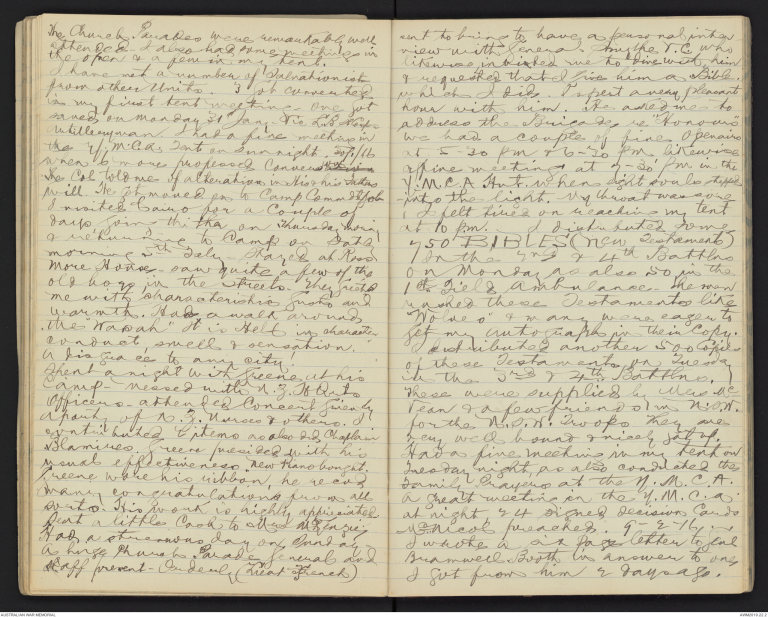 the Church Parades were remarkably well
attended. I also had some meetings in
the open & a few in my tent.
I have met a number of Salvationists
from other Units. 3 got converted
in my first tent meeting - one got
saved on Monday 31st Jan.
Artilleryman I had a fine meeting in
the Y.M.C.A. Tent on Sun night 30/1/16
when 6 more professed Conversion
the Col told me of alteration in
will. He got moved on to Camp Commdt Job
I visited Cairo for a Couple of
days going in the on Thursday morng
& returning to Camp on Sat
morning 5th Feby. Stayed at Ross
More House saw quite a few of the
old boys in the Streets. They greeted
me with characteristic gusto and
warmth. Had a walk around
the "Wazah" It is Hell in character
conduct, smell & sensation."
A disgrace to any city.
Spent a night with Greene at his
Camp - messed with N.Z.
Officers - attended Concert given by
a party of N.Z. Nurses & others. I
contributed 2 items as also did Chaplain
Greene presided with his
usual effectiveness. New Piano bought.
Greene wore his ribbon, he recd
many congratulations from all
sorts. His work is highly appreciated
Sent a little Cook to Mrs McKenzie
Had a strenuous day on Sunday
A huge Church Parade General and
Staff present - Orderly (Lieut French)
sent to bring to have a personal inter
view with General Smythe V.C. who
likewise invited me to dine with him
& requested that I give him a Bible.
which I did. I spent a very pleasant
hour with him. He asked me to
address the Brigade re "Honours"
We had a couple of fine Openairs
at 5-30 pm & 6-30 pm likewise
a fine meeting at 7-30 pm in the
Y.M.C.A Hut. When eight souls stepped
into the light. My throat was sore
& I felt tired on reaching my tent
at 10 pm. I distributed some
750 BIBLES (New Testaments)
In the 2nd & 4th Battlns
on Monday as also 50 in the
1st Field Ambulance. The men
rushed these Testaments like
"Wolves" & many were eager to
get my autograph in their Copy.
I distributed another 500 Copies
of these Testaments on Tuesday
in the 3rd & 4th Battlns.
These were supplied by Mrs Mc
Vean & a few friends in N.S.W.
for the N.S.W. Troops they are
very well bound & nicely got up.
Had a fine meeting in my tent on
Tuesday night, as also conducted the
Family Prayers at the Y.M.C.A.
A great meeting in the Y.M.C.A.
at night 24 signed decision Cards
McNicol preached. 9-2-16.
I wrote a page letter to Genl
Bramwell Booth in answer to one
I got from him 2 days ago.
AUSTRALIAN WAR MEMORIAL
AWM2019.22.2